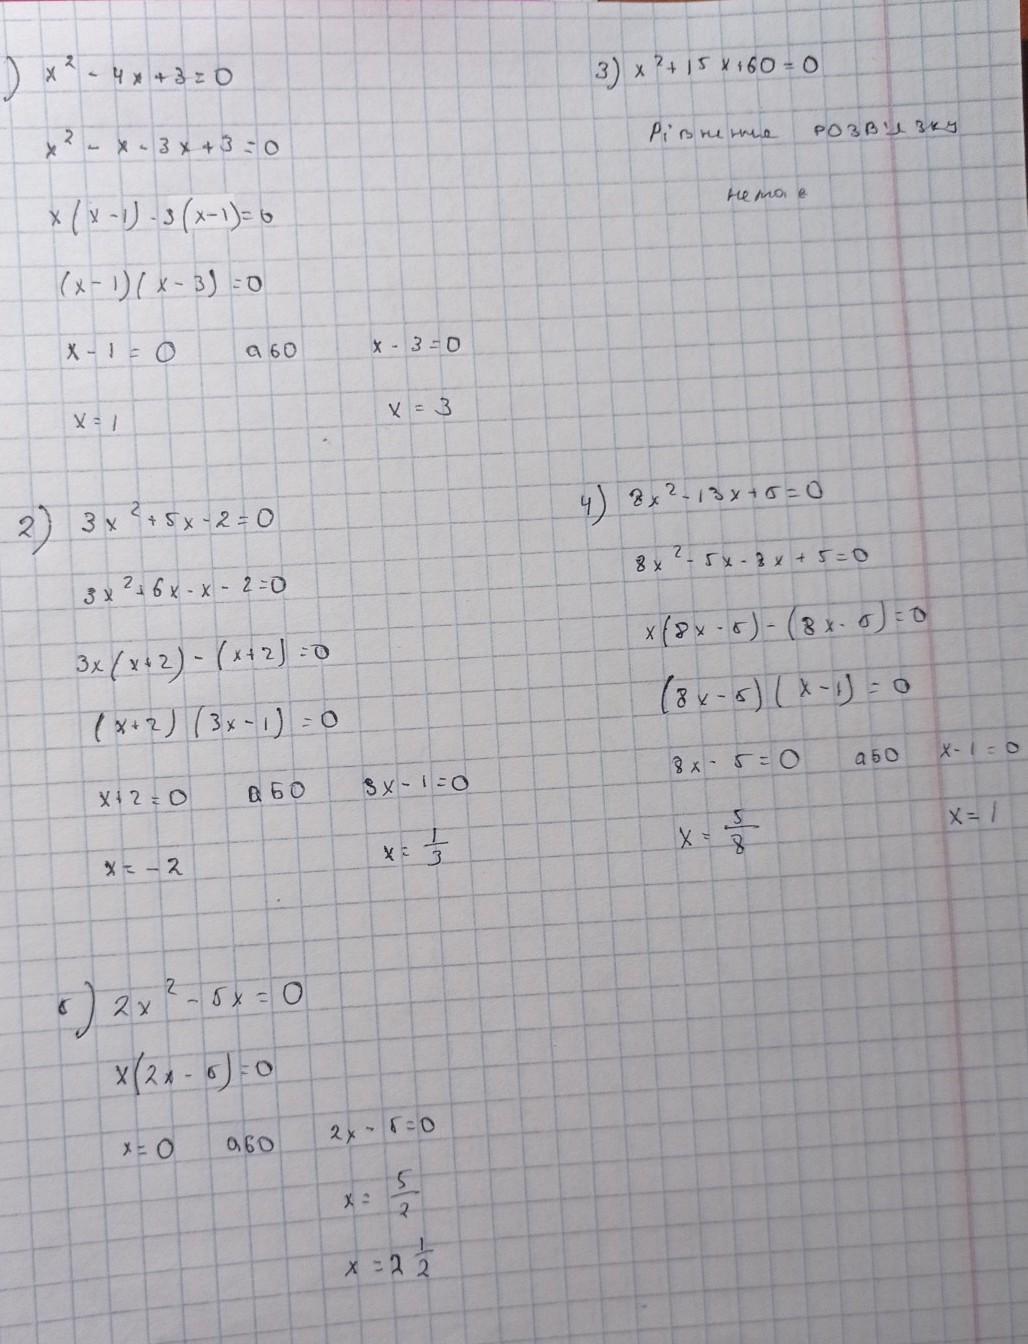 ) x² - 4x + 3 = 0
x² - x - 3x + 3 = 0
x(x-1) - 3(x-1) = 0
(x-1)(x-3) = 0
x - 1 = 0 або x - 3 = 0
x = 1 x = 3
2) 3x² + 5x - 2 = 0
3x² + 6x - x - 2 = 0
3x(x+2) - (x+2) = 0
(x+2)(3x-1) = 0
x+2 = 0 або 3x - 1 = 0
x = -2 x = 1/3
3) x² + 15x + 60 = 0
Рівняння розв'язку
немає
4) 8x² - 13x + 5 = 0
8x² - 5x - 8x + 5 = 0
x(8x - 5) - (8x - 5) = 0
(8x - 5)(x - 1) = 0
8x - 5 = 0 або x - 1 = 0
x = 5/8 x = 1
5) 2x² - 5x = 0
x(2x - 5) = 0
x = 0 або 2x - 5 = 0
x = 5/2
x = 2 1/2